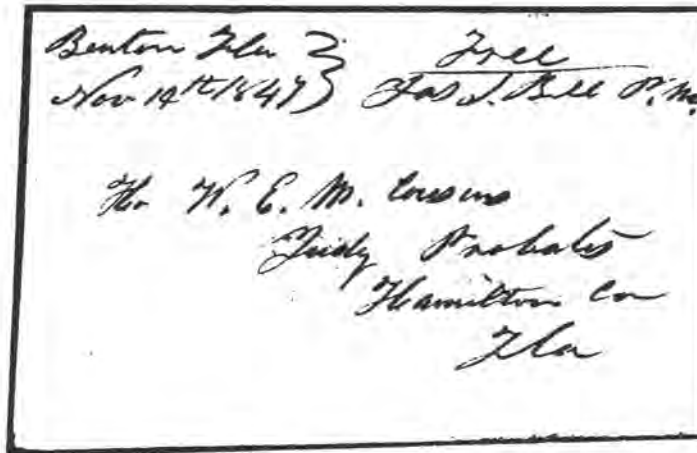 Benton Fla } Free
Nov 14th 1847 } Jas J. Bell P.M.
Ho W. E. M. Cousins
Judg Probates
Hamilton Co
Fla